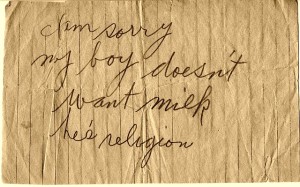 I'm sorry
my boy doesn't
want milk
he's religion